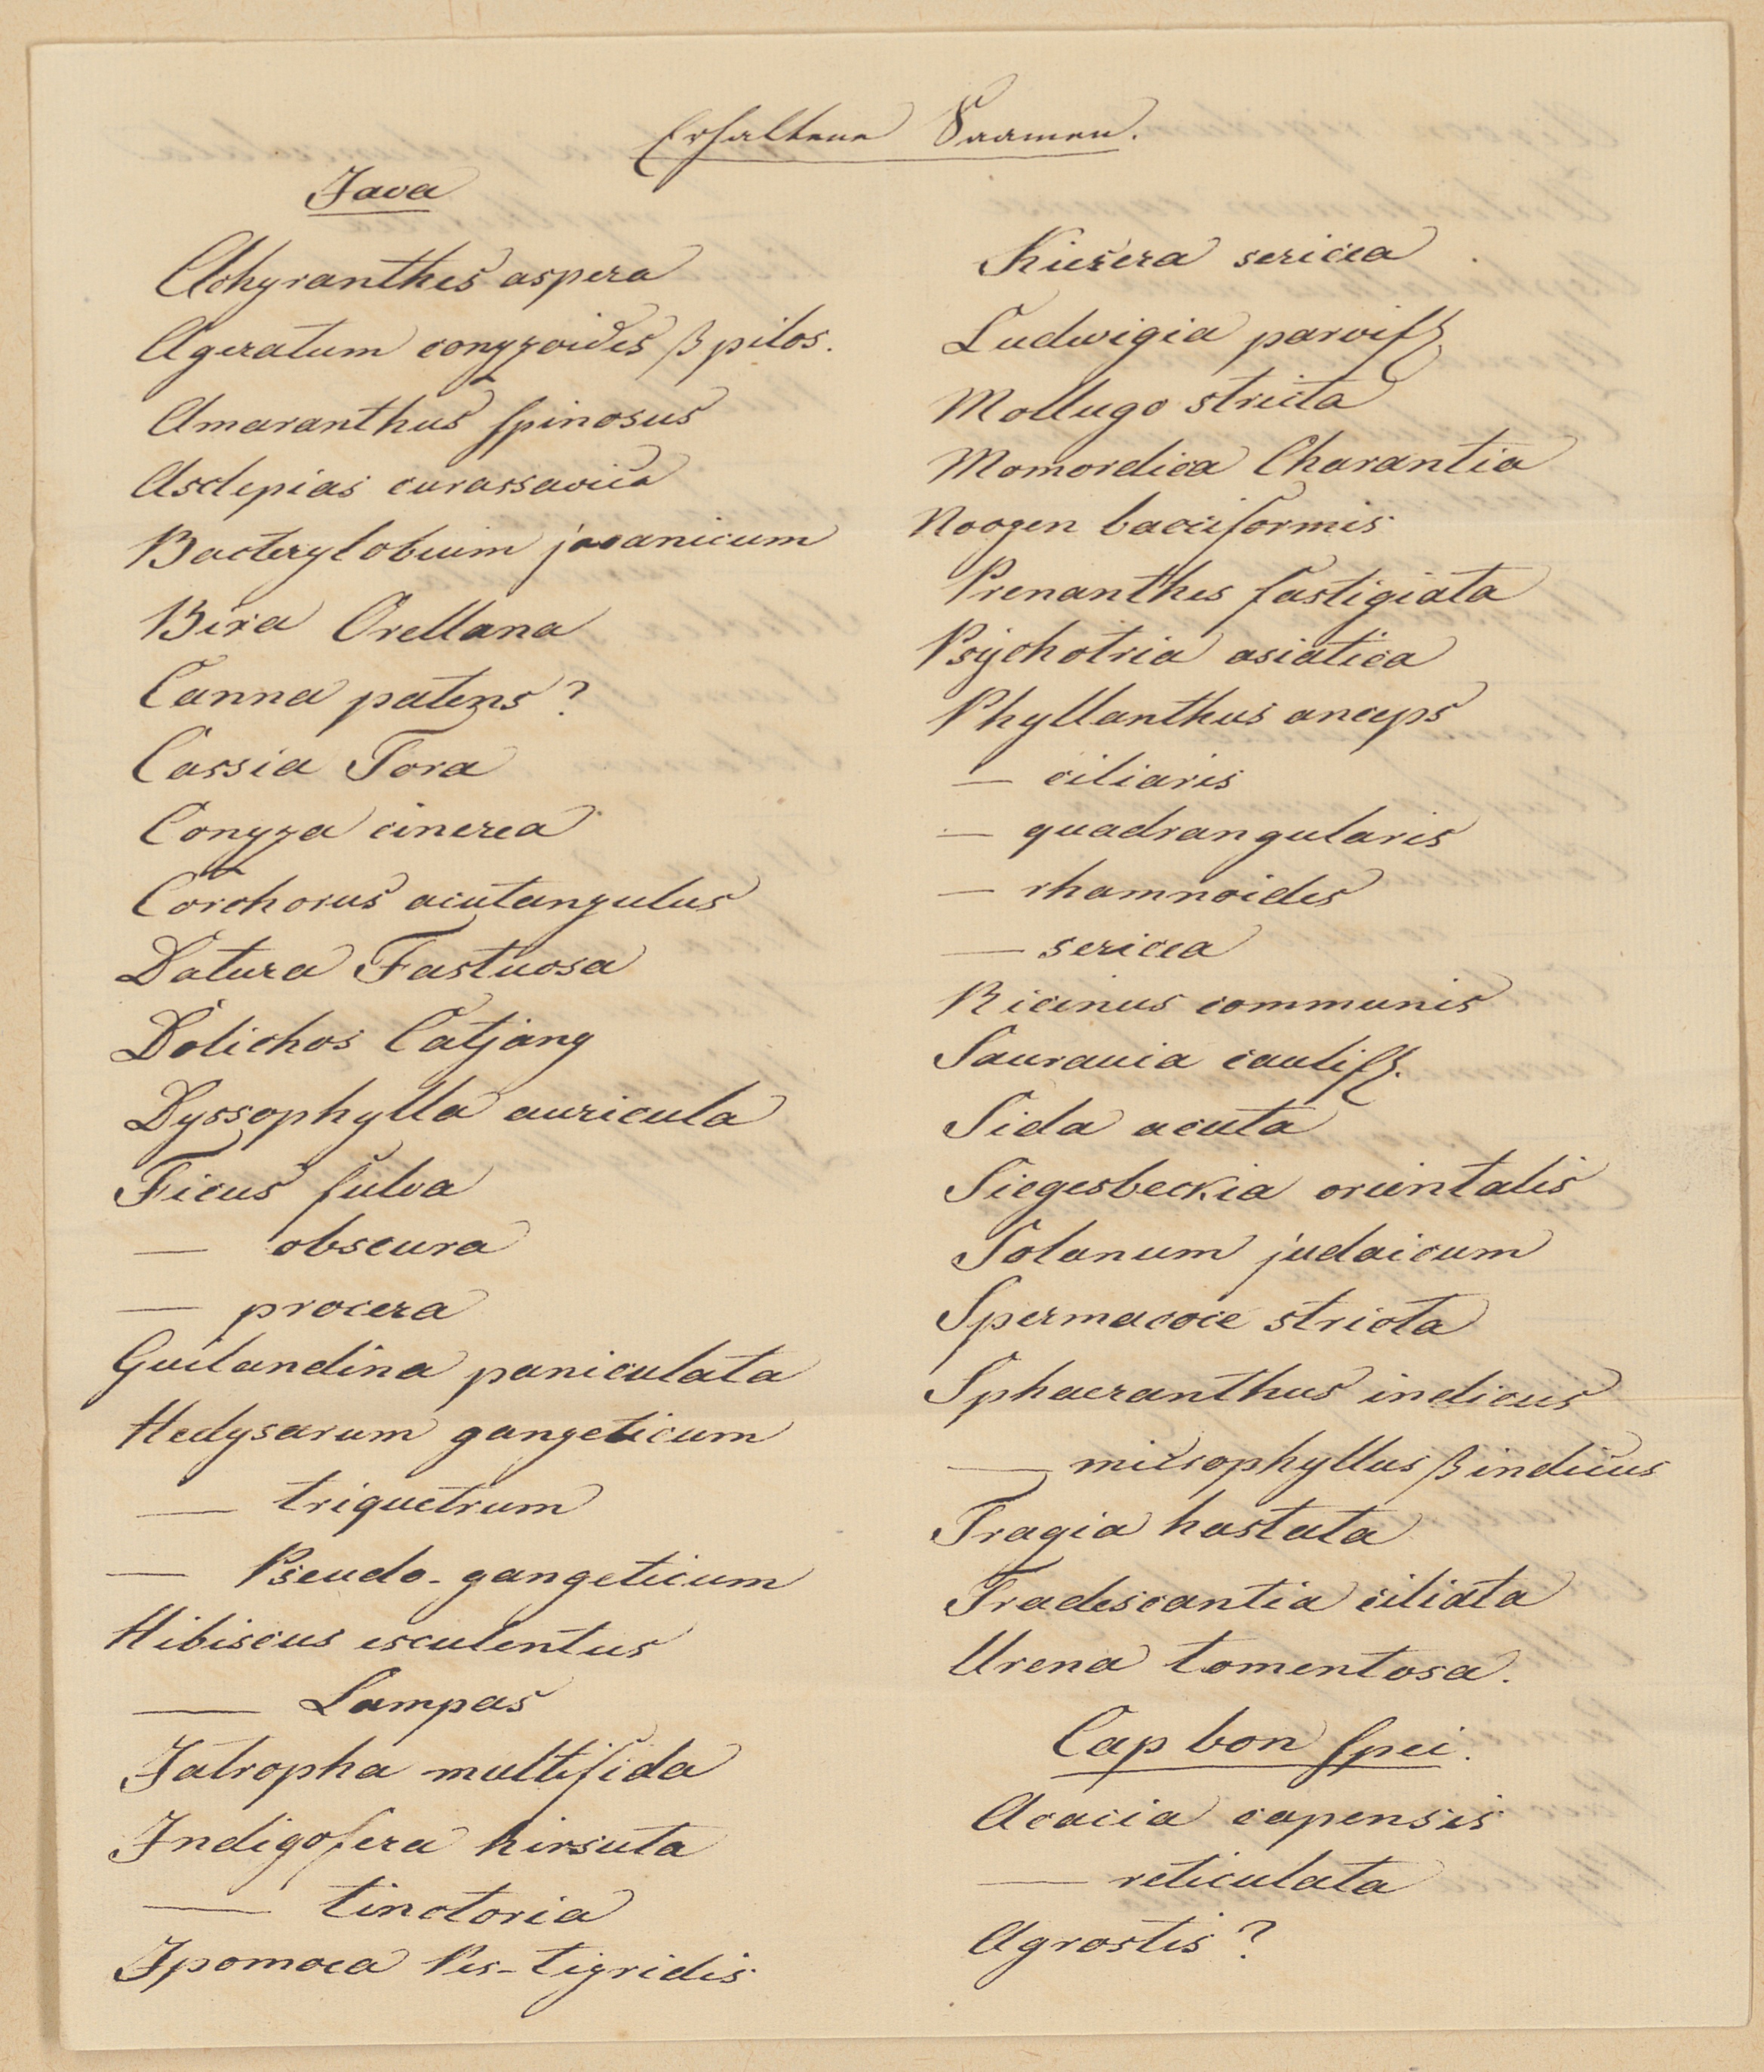 Erhaltene Saamen.
Java
Achyranthes aspera
Ageratum conyzoides β pilos.
Amaranthus spinosus
Asclepias curassavica
Bacterylobium javanicum
Bixa Orellana
Canna patens?
Cassia Tora
Conyza cinerea
Corchorus acutangulus
Datura Fastuosa
Dolichos Catjang
Dyssophylla auricula
Ficus fulva
— obscura
— procera
Guilandina paniculata
Hedysarum gangeticum
— triquetrum
— Pseudo-gangeticum
Hibiscus esculentus
— Lampas
Jatropha multifida
Indigofera hirsuta
— tinctoria
Ipomoea Pes-tigridis
Kiesera sericea
Ludwigia parvifl
Mollugo stricta
Momordica Charantia
Noogen bacciformis
Prenanthes fastigiata
Psychotria asiatica
Phyllanthus anceps
— ciliaris
— quadrangularis
— rhamnoides
— sericea
Ricinus communis
Saurauia caulifl.
Sida acuta
Siegesbeckia orientalis
Solanum judaicum
Spermacoce stricta
Sphaeranthus indicus
— microphyllus β indicus
Tragia hastata
Tradescantia ciliata
Urena tomentosa.
Cap bon spei.
Acacia capensis
— reticulata
Agrostis?